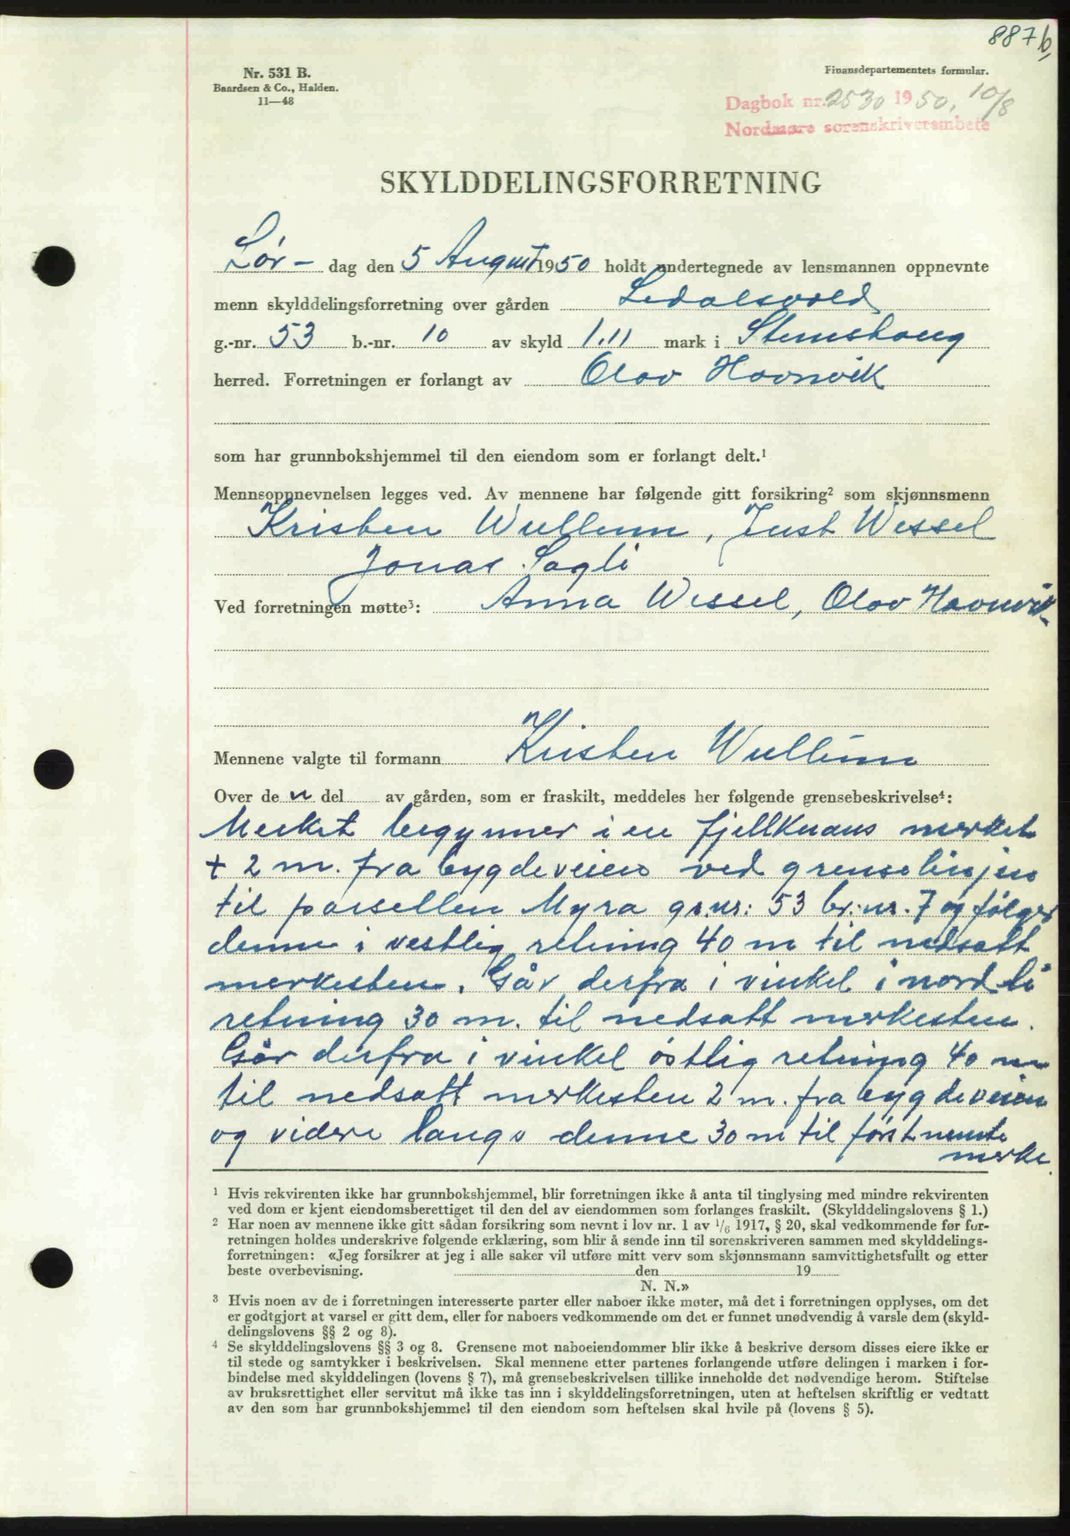 887b,
Nr. 531 B.
Baardsen & Co., Halden.
11—48
Finansdepartementets formular.
Dagbok nr. 2530 1950, 10/8
Nordmøre sorenskriverembete
SKYLDDELINGSFORRETNING
Lør- dag den 5 August 1950 holdt undertegnede av lensmannen oppnevnte
menn skylddelingsforretning over gården Ledalsvold
g.-nr. 53 b.-nr. 10 av skyld 1.11 mark i Stemshaug
herred. Forretningen er forlangt av Olav Havnvik
som har grunnbokshjemmel til den eiendom som er forlangt delt.¹
Mennsoppnevnelsen legges ved. Av mennene har følgende gitt forsikring² som skjønnsmenn
Kristen Wullum, Just Wessel
Jonas Sagli
Ved forretningen møtte³: Anna Wessel, Olav Havnvik
Mennene valgte til formann Kristen Wullum
Over de n del av gården, som er fraskilt, meddeles her følgende grensebeskrivelse⁴:
Merket begynner i en fjellknaus merket
+ 2 m. fra bygdeveien ved grenselinjen
til parsellen Myra gr.nr: 53 br.nr. 7 og følger
denne i vestlig retning 40 m til nedsatt
merkesten. Går derfra i vinkel i nordli
retning 30 m. til nedsatt merkesten.
Går derfra i vinkel østlig retning 40 m
til nedsatt merkesten 2 m. fra bygdeveien
og videre langs denne 30 m til først nemte
merke.
¹ Hvis rekvirenten ikke har grunnbokshjemmel, blir forretningen ikke å anta til tinglysing med mindre rekvirenten
ved dom er kjent eiendomsberettiget til den del av eiendommen som forlanges fraskilt. (Skylddelingslovens § 1.)
² Har noen av mennene ikke gitt sådan forsikring som nevnt i lov nr. 1 av 1/6 1917, § 20, skal vedkommende før for-
retningen holdes underskrive følgende erklæring, som blir å sende inn til sorenskriveren sammen med skylddelings-
forretningen: «Jeg forsikrer at jeg i alle saker vil utføre mitt verv som skjønnsmann samvittighetsfullt og etter
beste overbevisning. den 19
N. N.»
³ Hvis noen av de i forretningen interesserte parter eller naboer ikke møter, må det i forretningen opplyses, om det
er godtgjort at varsel er gitt dem, eller for naboers vedkommende om det er funnet unødvendig å varsle dem (skyld-
delingslovens §§ 2 og 8).
⁴ Se skylddelingslovens §§ 3 og 8. Grensene mot naboeiendommer blir ikke å beskrive dersom disses eiere ikke er
til stede og samtykker i beskrivelsen. Skal mennene etter partenes forlangende utføre delingen i marken i for-
bindelse med skylddelingen (lovens § 7), må grensebeskrivelsen tillike inneholde det nødvendige herom. Stiftelse
av bruksrettighet eller servitut må ikke tas inn i skylddelingsforretningen, uten at heftelsen skriftlig er vedtatt
av den som har grunnbokshjemmel til den eiendom som heftelsen skal hvile på (lovens § 5).